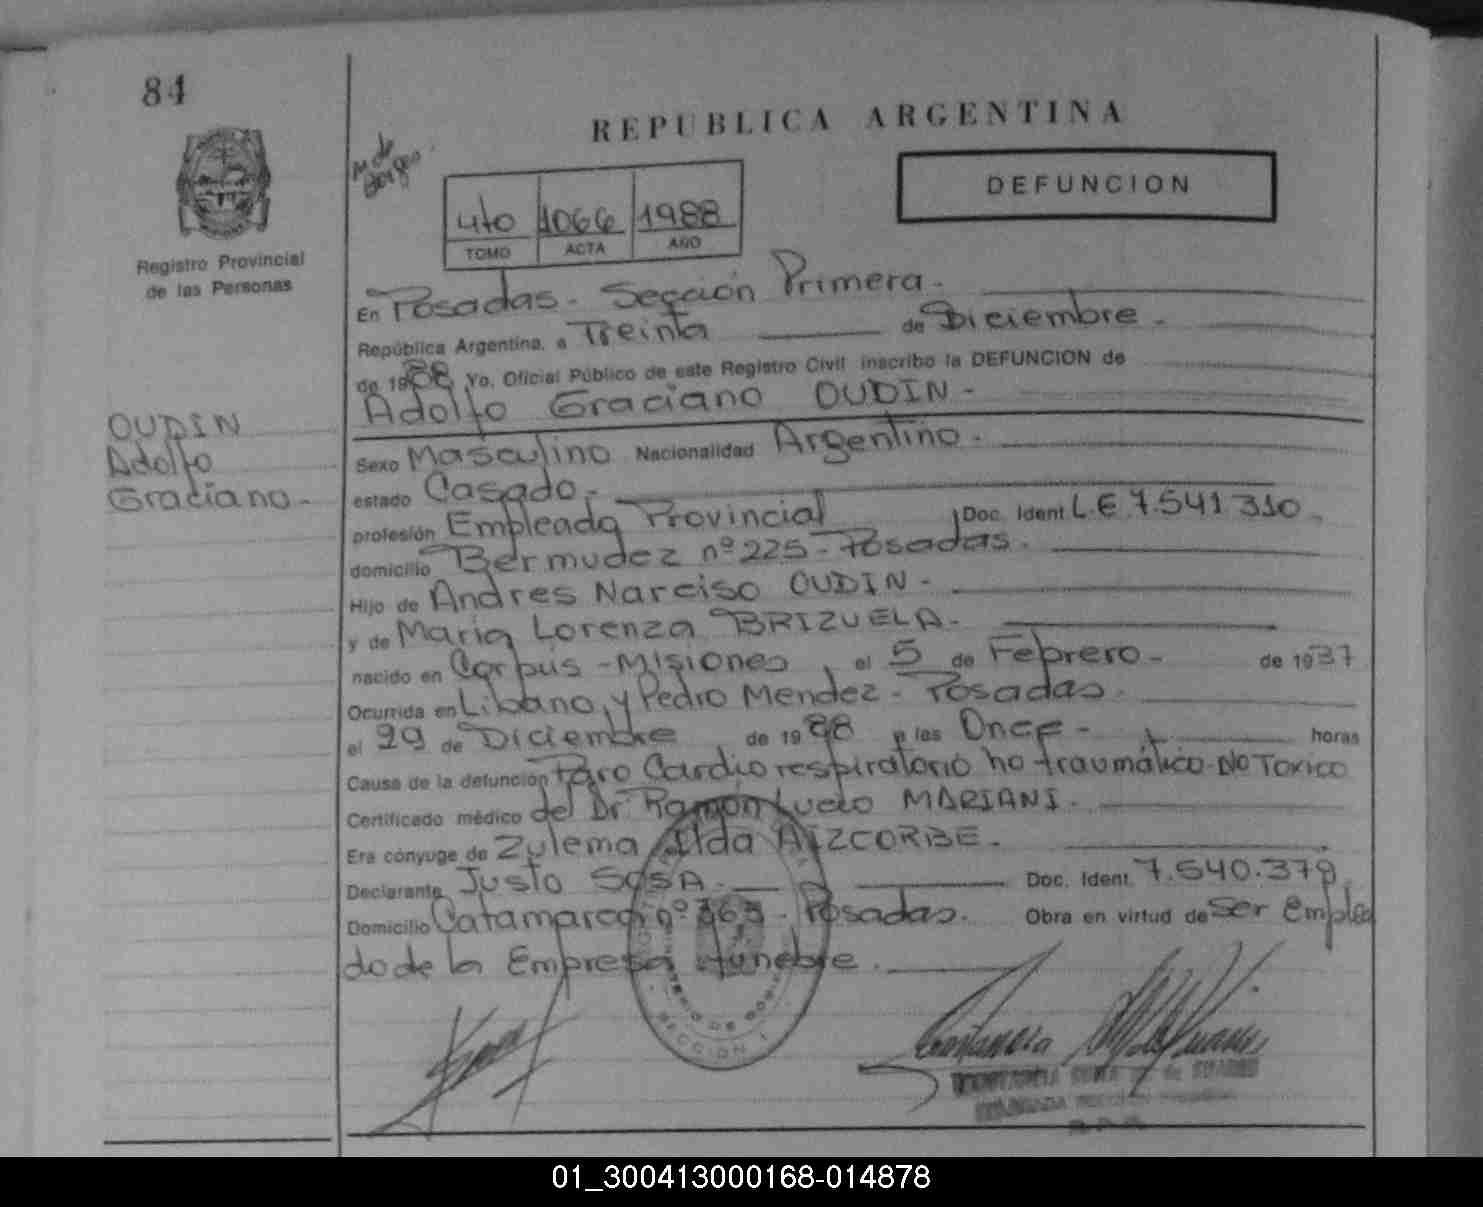 84
REPUBLICA ARGENTINA
DEFUNCION
4to 1066 1988
TOMO ACTA AÑO
Registro Provincial
de las Personas
En Posadas - Sección Primera -
República Argentina, a Treinta de Diciembre -
de 1988 Yo, Oficial Público de este Registro Civil inscribo la DEFUNCION de
Adolfo Graciano OUDIN -
OUDIN
Adolfo
Graciano -
Sexo Masculino Nacionalidad Argentino -
estado Casado -
profesión Empleado Provincial Doc. Ident L.E 7.541 310 -
domicilio Bermudez nº 225 - Posadas -
Hijo de Andres Narciso OUDIN -
y de Maria Lorenza BRIZUELA -
nacido en Corpus - Misiones, el 5 de Febrero - de 1937
Ocurrida en Libano y Pedro Mendez - Posadas -
el 29 de Diciembre de 1988 a las Once - horas
Causa de la defunción Paro Cardio respiratorio no traumático - No Toxico
Certificado médico del Dr Ramón Lucio MARIANI -
Era cónyuge de Zulema Ilda AIZCORBE -
Declarante Justo SOSA - Doc. Ident. 7.540.379
Domicilio Catamarca nº 363 - Posadas. Obra en virtud de ser emplea
do de la Empresa funebre.
SECCION 1
01_300413000168-014878